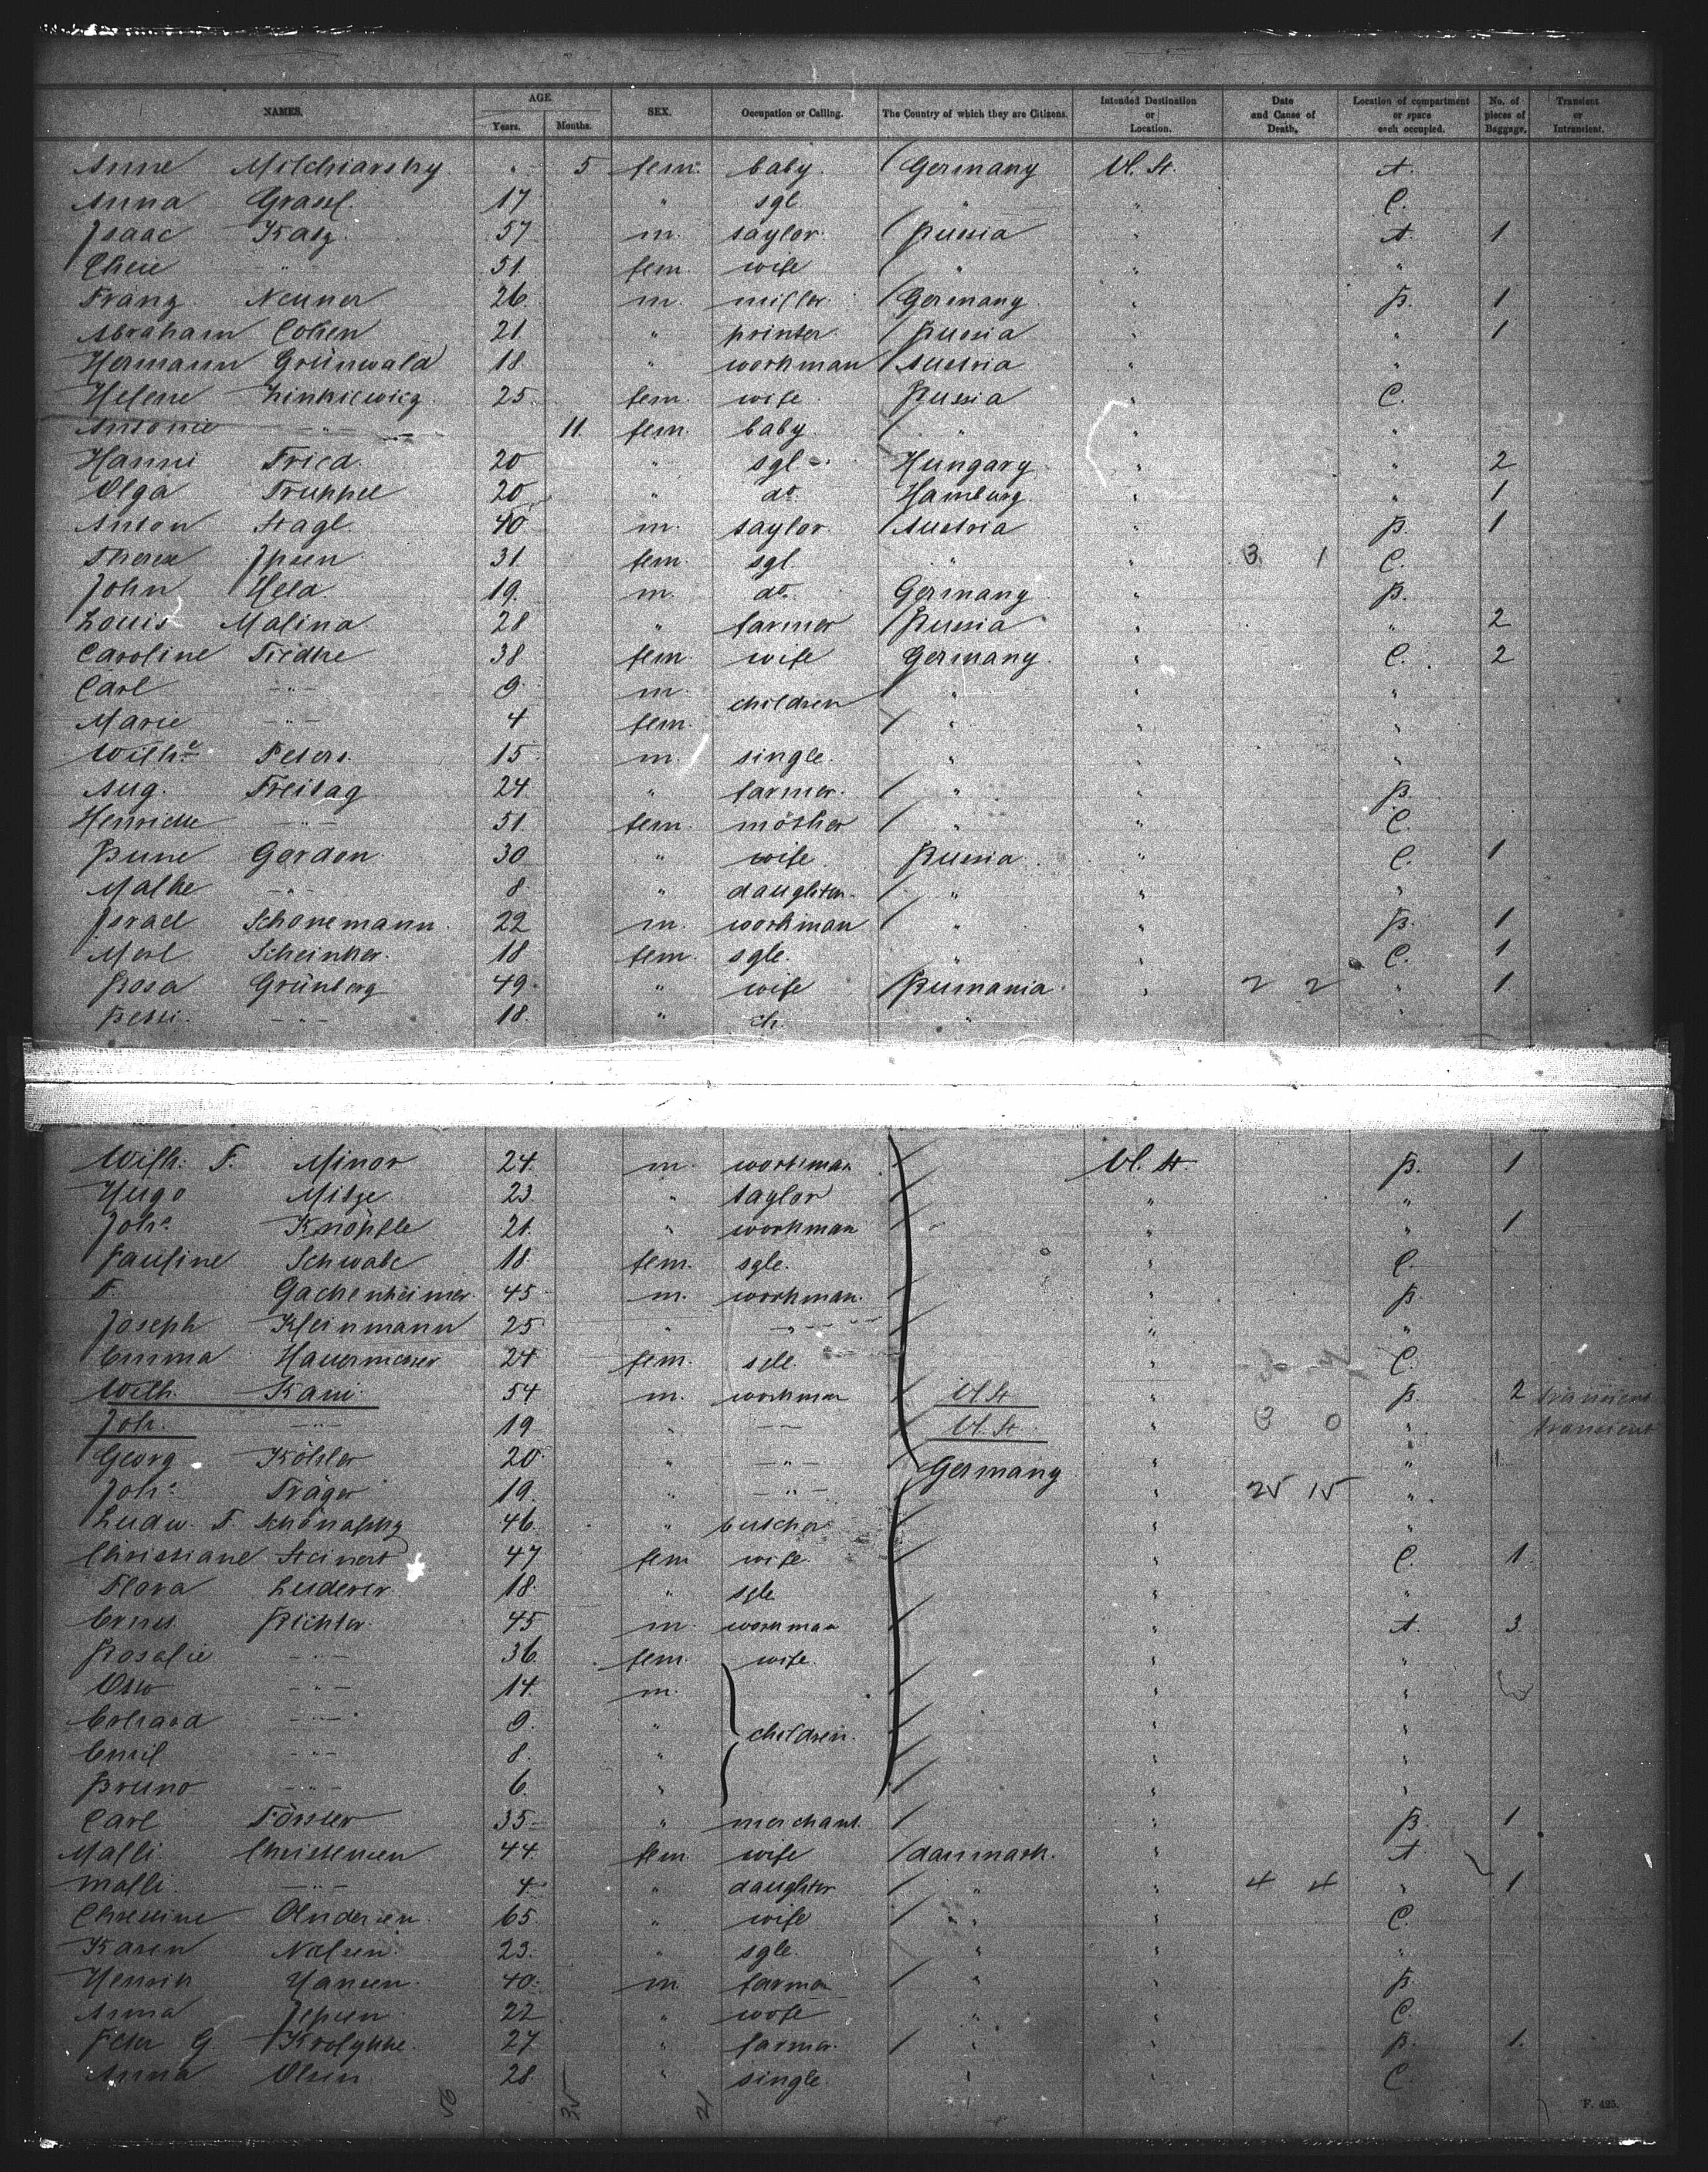 NAMES. AGE. Years. Months. SEX. Occupation or Calling. The Country of which they are Citizens. Intended Destination or Location. Date and Cause of Death. Location of compartment or space each occupied. No. of pieces of Baggage. Transient or Intransient.
Anne Milchiarsky " 5 fem. baby. Germany U. St. A.
Anna Grassl. 17 " sgl. " " C.
Isaac Kasz. 57 m. taylor. Russia " A. 1
Cheie " 51. fem. wife " " "
Franz Neuner 26. m. miller. Germany " B. 1
Abraham Cohen 21. " printer. Russia " " 1
Hermann Grünwald 18. " workman Austria " "
Helene Zinkiewicz. 25. fem. wife Russia " C.
Antonie -"- 11. fem. baby. " " "
Hanni Fried. 20 " sgl. Hungary " " 2
Olga Truppel 20 " do. Hamburg. " " 1
Anton Stagl. 40. m. taylor. Austria " B. 1
Therese Ipsen 31. fem. sgl. " " 3 1 C.
John Hela 19. m. do. Germany " B.
Louis Malina 28 " farmer Russia " " 2
Caroline Tiedke 38. fem. wife Germany. " C. 2
Carl -"- 9. m. children " " "
Marie -"- 4 fem. " " "
Wilhe Peters. 15. m. single. " " "
Aug. Freitag 24 " farmer. " " B.
Henriette -"- 51. fem. mother " " C.
Rune Gordon. 30 " wife Russia " C. 1
Malke -"- 8. " daughter. " " "
Israel Schönemann. 22 m. workman " " B. 1
Merl Scheinker. 18 fem. sgle. " " C. 1
Rosa Grünberg 49. " wife Rumania " 2 2 " 1
Bessi. -"- 18. " ch. " "
Wilh. F. Minor 24. m. workman U. St. B. 1
Hugo Mitze 23. " taylor " "
Johs. Knöpfle 21. " workman " " 1
Pauline Schwabe 18. fem. sgle. " C.
F. Gachenheimer 45. m. workman. " B.
Joseph Kleinmann 25 " -"- " "
Emma Hauermesser 24 fem. sgle. " C.
Wilh. Kani. 54 m. workman U. St " B. 2 transient
Joh. -"- 19 " -"- U. St. " 3 0 " transient
Georg Köhler 20. " -"- Germany " " 1
Joh. Träger 19. " -"- " 25 15 "
Ludw. F. 46. " butcher " "
Christiane Steinert 47 fem wife. " C. 1.
Flora Luderer. 18. " sgle. " "
Ernst. Richter. 45 m. workman " A. 3.
Rosalie -"- 36. fem. wife. " "
Otto -"- 14. m. " "
Erhard -"- 9. " children. " "
Emil -"- 8. " " "
Bruno -"- 6. " " "
Carl Förster 35 " merchant. " B. 1
Malli. Christensen 44. fem. wife danmark. " A.
Malli. -"- 4 " daughter " " 4 4 " 1
Christine Andersen. 65. " wife " " C.
Karen Nielsen. 23. " sgle. " " "
Henrik Hansen. 40. m. farmer " " B.
Anna Jepsen 22 " wife " " C.
Peter G. Krolykke. 27 " farmer. " " B. 1.
Anna Olsen 28. " single. " " C.
56 35 21
F. 425.